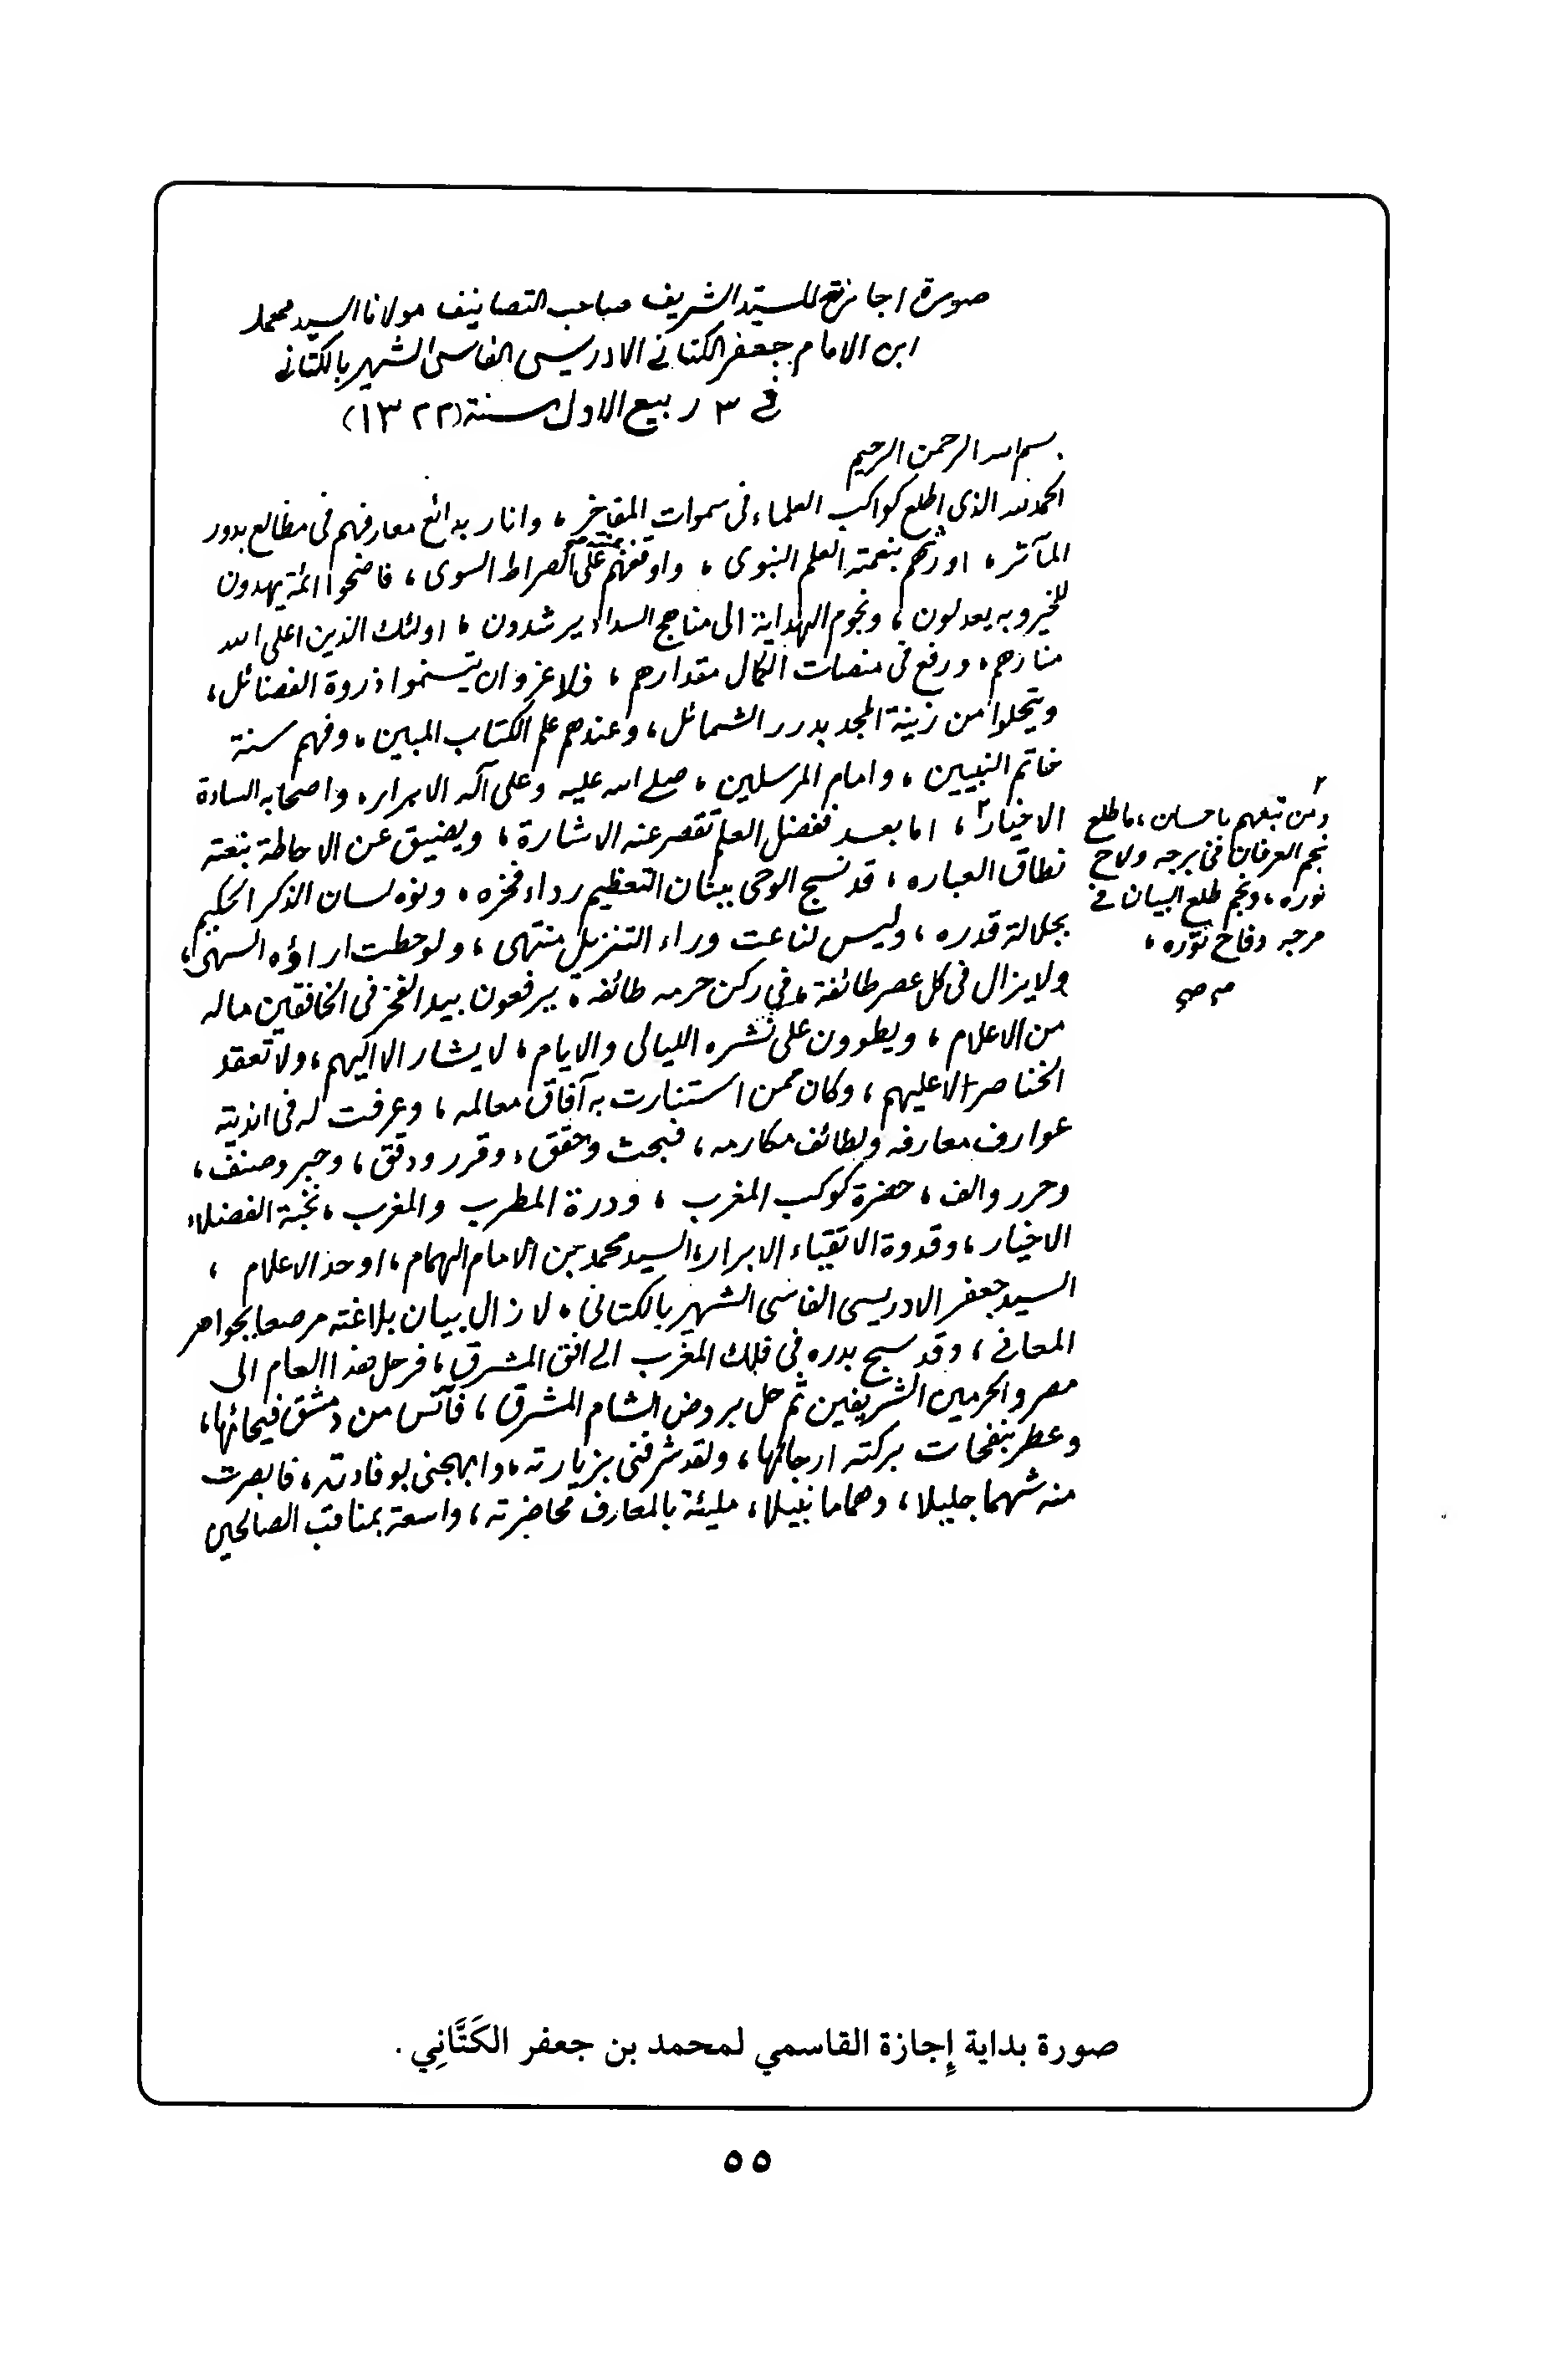 صورة اجازتي للسيد الشريف صاحب التصانيف مولانا السيد محمد
ابن الامام جعفر الكتاني الادريسي الفاسي الشهير بالكتاني
في ٣ ربيع الاول سنة (١٣٢٢)
بسم الله الرحمن الرحيم
الحمد لله الذي اطلع كواكب العلماء في سموات المفاخر، وانار بدائع معارفهم في مطالع بدور
المآثر، اورثهم بنعمته العلم النبوي، واوقفهم بمنته على الصراط السوي، فاضحوا ائمة يهدون
للخير وبه يعدلون، ونجوم الهداية الى مناهج السداد يرشدون، اولئك الذين اعلى الله
منارهم، ورفع في منصات الكمال مقدارهم، فلا غرو ان يتسنموا ذروة الفضائل،
ويتحلوا من زينة المجد بدرر الشمائل، وعندهم علم الكتاب المبين، وفهم سنة
خاتم النبيين، وامام المرسلين، صلى الله عليه وعلى آله الابرار، واصحابه السادة
الاخيار٢، اما بعد ففضل العلم تقصر عنه الاشارة، ويضيق عن الاحاطة بنعته
نطاق العباره، قد نسج الوحي ببنان التعظيم رداء فخره، ونوه لسان الذكر الحكيم
بجلالة قدره، وليس لناعت وراء التنزيل منتهى، ولو حطت اراؤه السهى،
ولا يزال في كل عصر طائفة، في ركن حرمه طائفة، يرفعون بيد الفخر في الخافقين ماله
من الاعلام، ويطوون على نشره الليالي والايام، لا يشار الا اليهم، ولا تعقد
الخناصر الا عليهم، وكان ممن استنارت به آفاق معالمه، وعرفت له في انديته
عوارف معارفه ولطائف مكارمه، فبحث وحقق، وقرر ودقق، وحبر وصنف،
وحرر والف، حضرة كوكب المغرب، ودرة المطرب والمغرب، نخبة الفضلاء
الاخيار، وقدوة الاتقياء الابرار، السيد محمد بن الامام الهمام، اوحد الاعلام،
السيد جعفر الادريسي الفاسي الشهير بالكتاني، لا زال بيان بلاغته مرصعا بجواهر
المعاني، وقد سبح بدره في فلك المغرب الى افق المشرق، فرحل هذا العام الى
مصر والحرمين الشريفين ثم حل بروض الشام المشرق، فآنس من دمشق فيحائها،
وعطر بنفحات بركته ارجائها، ولقد شرفني بزيارته، وابهجني بوفادته، فابصرت
منه شهما جليلا، وهماما نبيلا، مليئة بالمعارف محاضرته، واسعة بمناقب الصالحين
٢
ومن تبعهم باحسان، ما طلع
نجم العرفان في برجه ولاح
نوره، ونجم طلع البيان في
مرجه وفاح نوّره،
صح صح
صورة بداية إجازة القاسمي لمحمد بن جعفر الكَتَّانِي .
٥٥